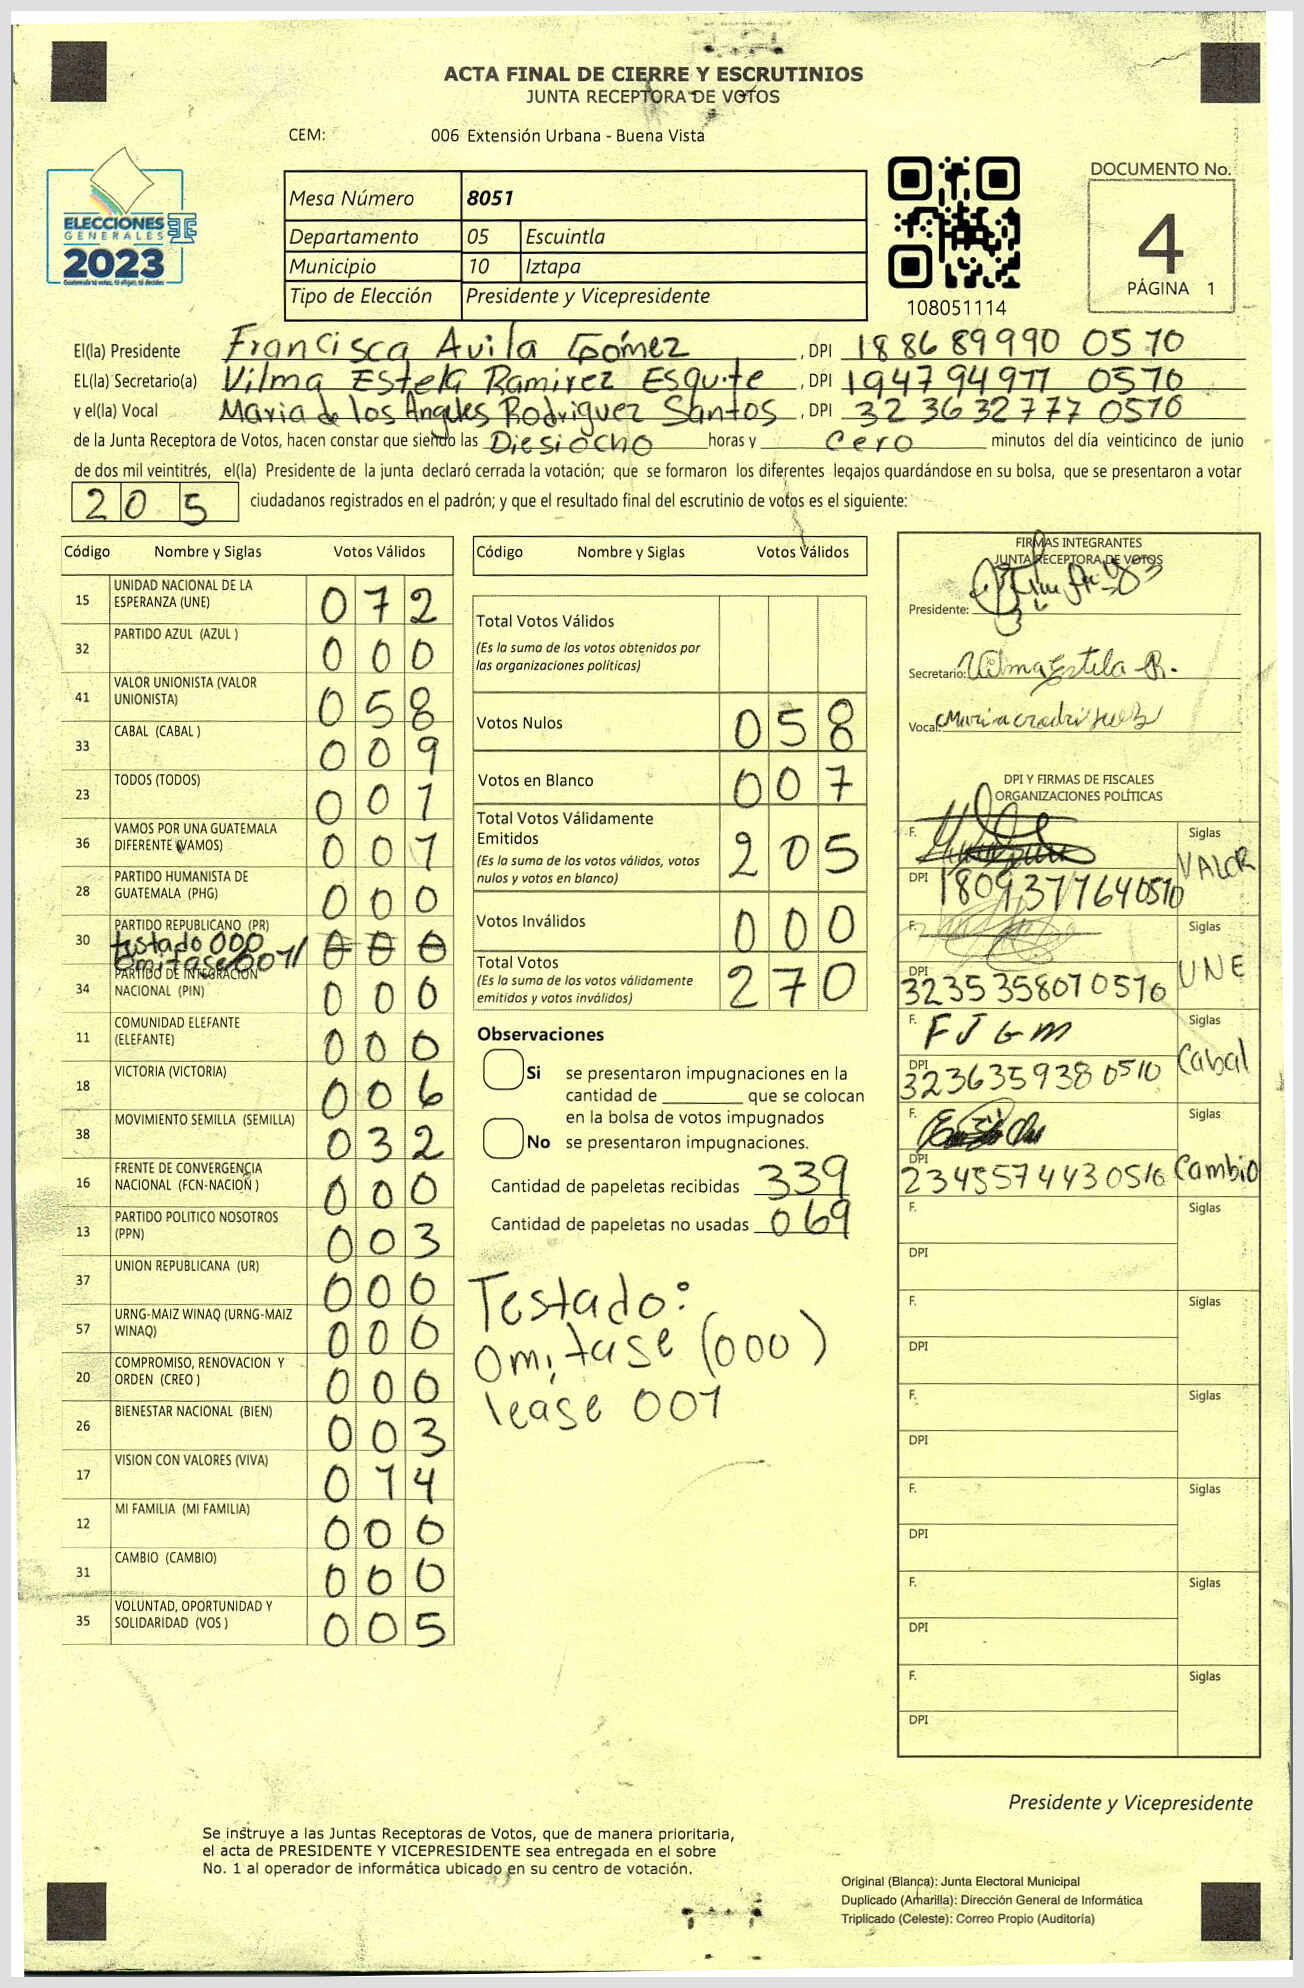 ACTA FINAL DE CIERRE Y ESCRUTINIOS
JUNTA RECEPTORA DE VOTOS
CEM: 006 Extensión Urbana - Buena Vista
ELECCIONES
GENERALES
2023
Mesa Número 8051
Departamento 05 Escuintla
Municipio 10 Iztapa
Tipo de Elección Presidente y Vicepresidente
108051114
DOCUMENTO No.
4
PÁGINA 1
El(la) Presidente Francisca Avila Gómez , DPI 188689990 0570
EL(la) Secretario(a) Vilma Estela Ramirez Esquite , DPI 194794977 0570
y el(la) Vocal Maria de los Angeles Rodriguez Santos , DPI 323632777 0570
de la Junta Receptora de Votos, hacen constar que siendo las Diesiocho horas y Cero minutos del día veinticinco de junio
de dos mil veintitrés, el(la) Presidente de la junta declaró cerrada la votación; que se formaron los diferentes legajos guardándose en su bolsa, que se presentaron a votar
205 ciudadanos registrados en el padrón; y que el resultado final del escrutinio de votos es el siguiente:
Código Nombre y Siglas Votos Válidos
15 UNIDAD NACIONAL DE LA ESPERANZA (UNE) 072
32 PARTIDO AZUL (AZUL ) 000
41 VALOR UNIONISTA (VALOR UNIONISTA) 058
33 CABAL (CABAL ) 009
23 TODOS (TODOS) 001
36 VAMOS POR UNA GUATEMALA DIFERENTE (VAMOS) 001
28 PARTIDO HUMANISTA DE GUATEMALA (PHG) 000
30 PARTIDO REPUBLICANO (PR) 000
testado 000
omitase 001/
34 PARTIDO DE INTEGRACION NACIONAL (PIN) 000
11 COMUNIDAD ELEFANTE (ELEFANTE) 000
18 VICTORIA (VICTORIA) 006
38 MOVIMIENTO SEMILLA (SEMILLA) 032
16 FRENTE DE CONVERGENCIA NACIONAL (FCN-NACION ) 000
13 PARTIDO POLITICO NOSOTROS (PPN) 003
37 UNION REPUBLICANA (UR) 000
57 URNG-MAIZ WINAQ (URNG-MAIZ WINAQ) 000
20 COMPROMISO, RENOVACION Y ORDEN (CREO ) 000
26 BIENESTAR NACIONAL (BIEN) 003
17 VISION CON VALORES (VIVA) 014
12 MI FAMILIA (MI FAMILIA) 000
31 CAMBIO (CAMBIO) 000
35 VOLUNTAD, OPORTUNIDAD Y SOLIDARIDAD (VOS ) 005
Código Nombre y Siglas Votos Válidos
Total Votos Válidos
(Es la suma de los votos obtenidos por
las organizaciones políticas)
Votos Nulos 058
Votos en Blanco 007
Total Votos Válidamente
Emitidos 205
(Es la suma de los votos válidos, votos
nulos y votos en blanco)
Votos Inválidos 000
Total Votos 270
(Es la suma de los votos válidamente
emitidos y votos inválidos)
Observaciones
Si se presentaron impugnaciones en la
cantidad de ________ que se colocan
en la bolsa de votos impugnados
No se presentaron impugnaciones.
Cantidad de papeletas recibidas 339
Cantidad de papeletas no usadas 069
Testado:
omitase (000)
lease 001
FIRMAS INTEGRANTES
JUNTA RECEPTORA DE VOTOS
Presidente:
Secretario: Vilma Estela R.
Vocal:
DPI Y FIRMAS DE FISCALES
ORGANIZACIONES POLÍTICAS
F. Siglas VALOR
DPI 1809377640510
F. Siglas UNE
DPI 3235358070510
F. FJGM Siglas Cabal
DPI 323635938 0510
F. Siglas Cambio
DPI 234557443 0510
F. Siglas
DPI
F. Siglas
DPI
F. Siglas
DPI
F. Siglas
DPI
F. Siglas
DPI
F. Siglas
DPI
Presidente y Vicepresidente
Se instruye a las Juntas Receptoras de Votos, que de manera prioritaria,
el acta de PRESIDENTE Y VICEPRESIDENTE sea entregada en el sobre
No. 1 al operador de informática ubicado en su centro de votación.
Original (Blanca): Junta Electoral Municipal
Duplicado (Amarilla): Dirección General de Informática
Triplicado (Celeste): Correo Propio (Auditoría)